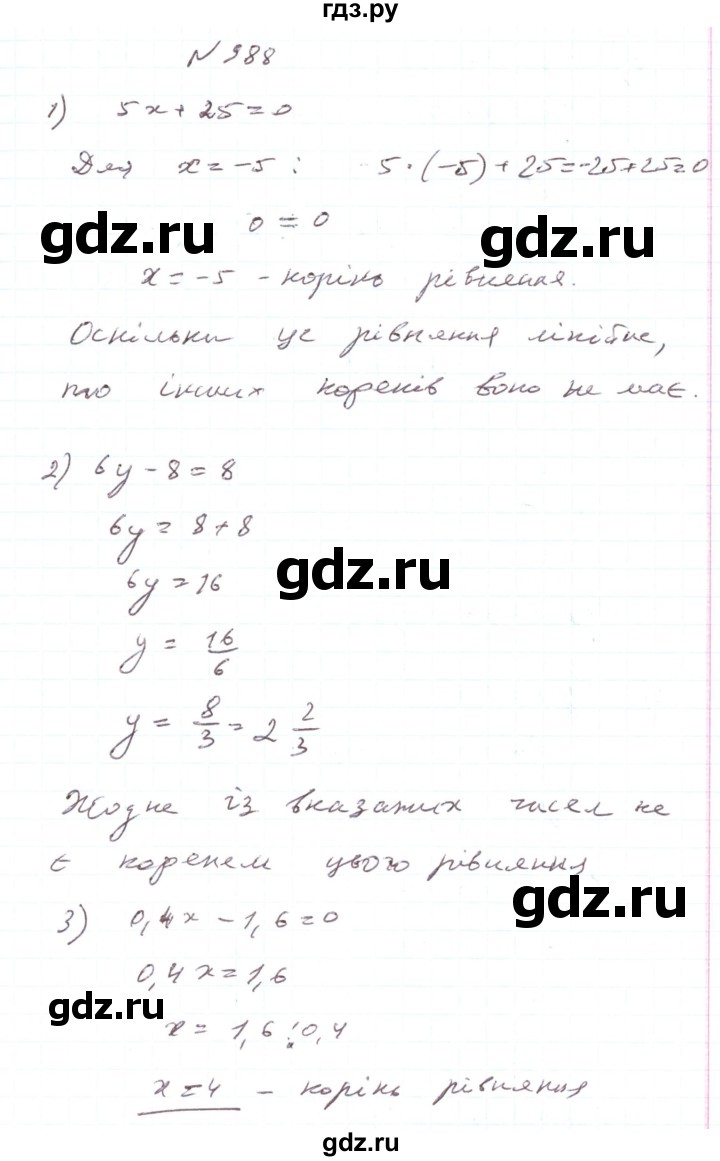 гдз.ру
№ 988
1) 5x + 25 = 0
Для x = -5 : 5 · (-5) + 25 = -25 + 25 = 0
0 = 0
gdz.ru
gdz.ru
x = -5 - корінь рівняння.
Оскільки це рівняння лінійне,
то інших коренів воно не має.
2) 6y - 8 = 8
6y = 8 + 8
gdz.ru
6y = 16
y = 16/6
y = 8/3 = 2 2/3
Жодне із вказаних чисел не
є коренем цього рівняння
gdz.ru
3) 0,4x - 1,6 = 0
0,4x = 1,6
gdz.ru
x = 1,6 : 0,4
x = 4 - корінь рівняння
gdz.ru